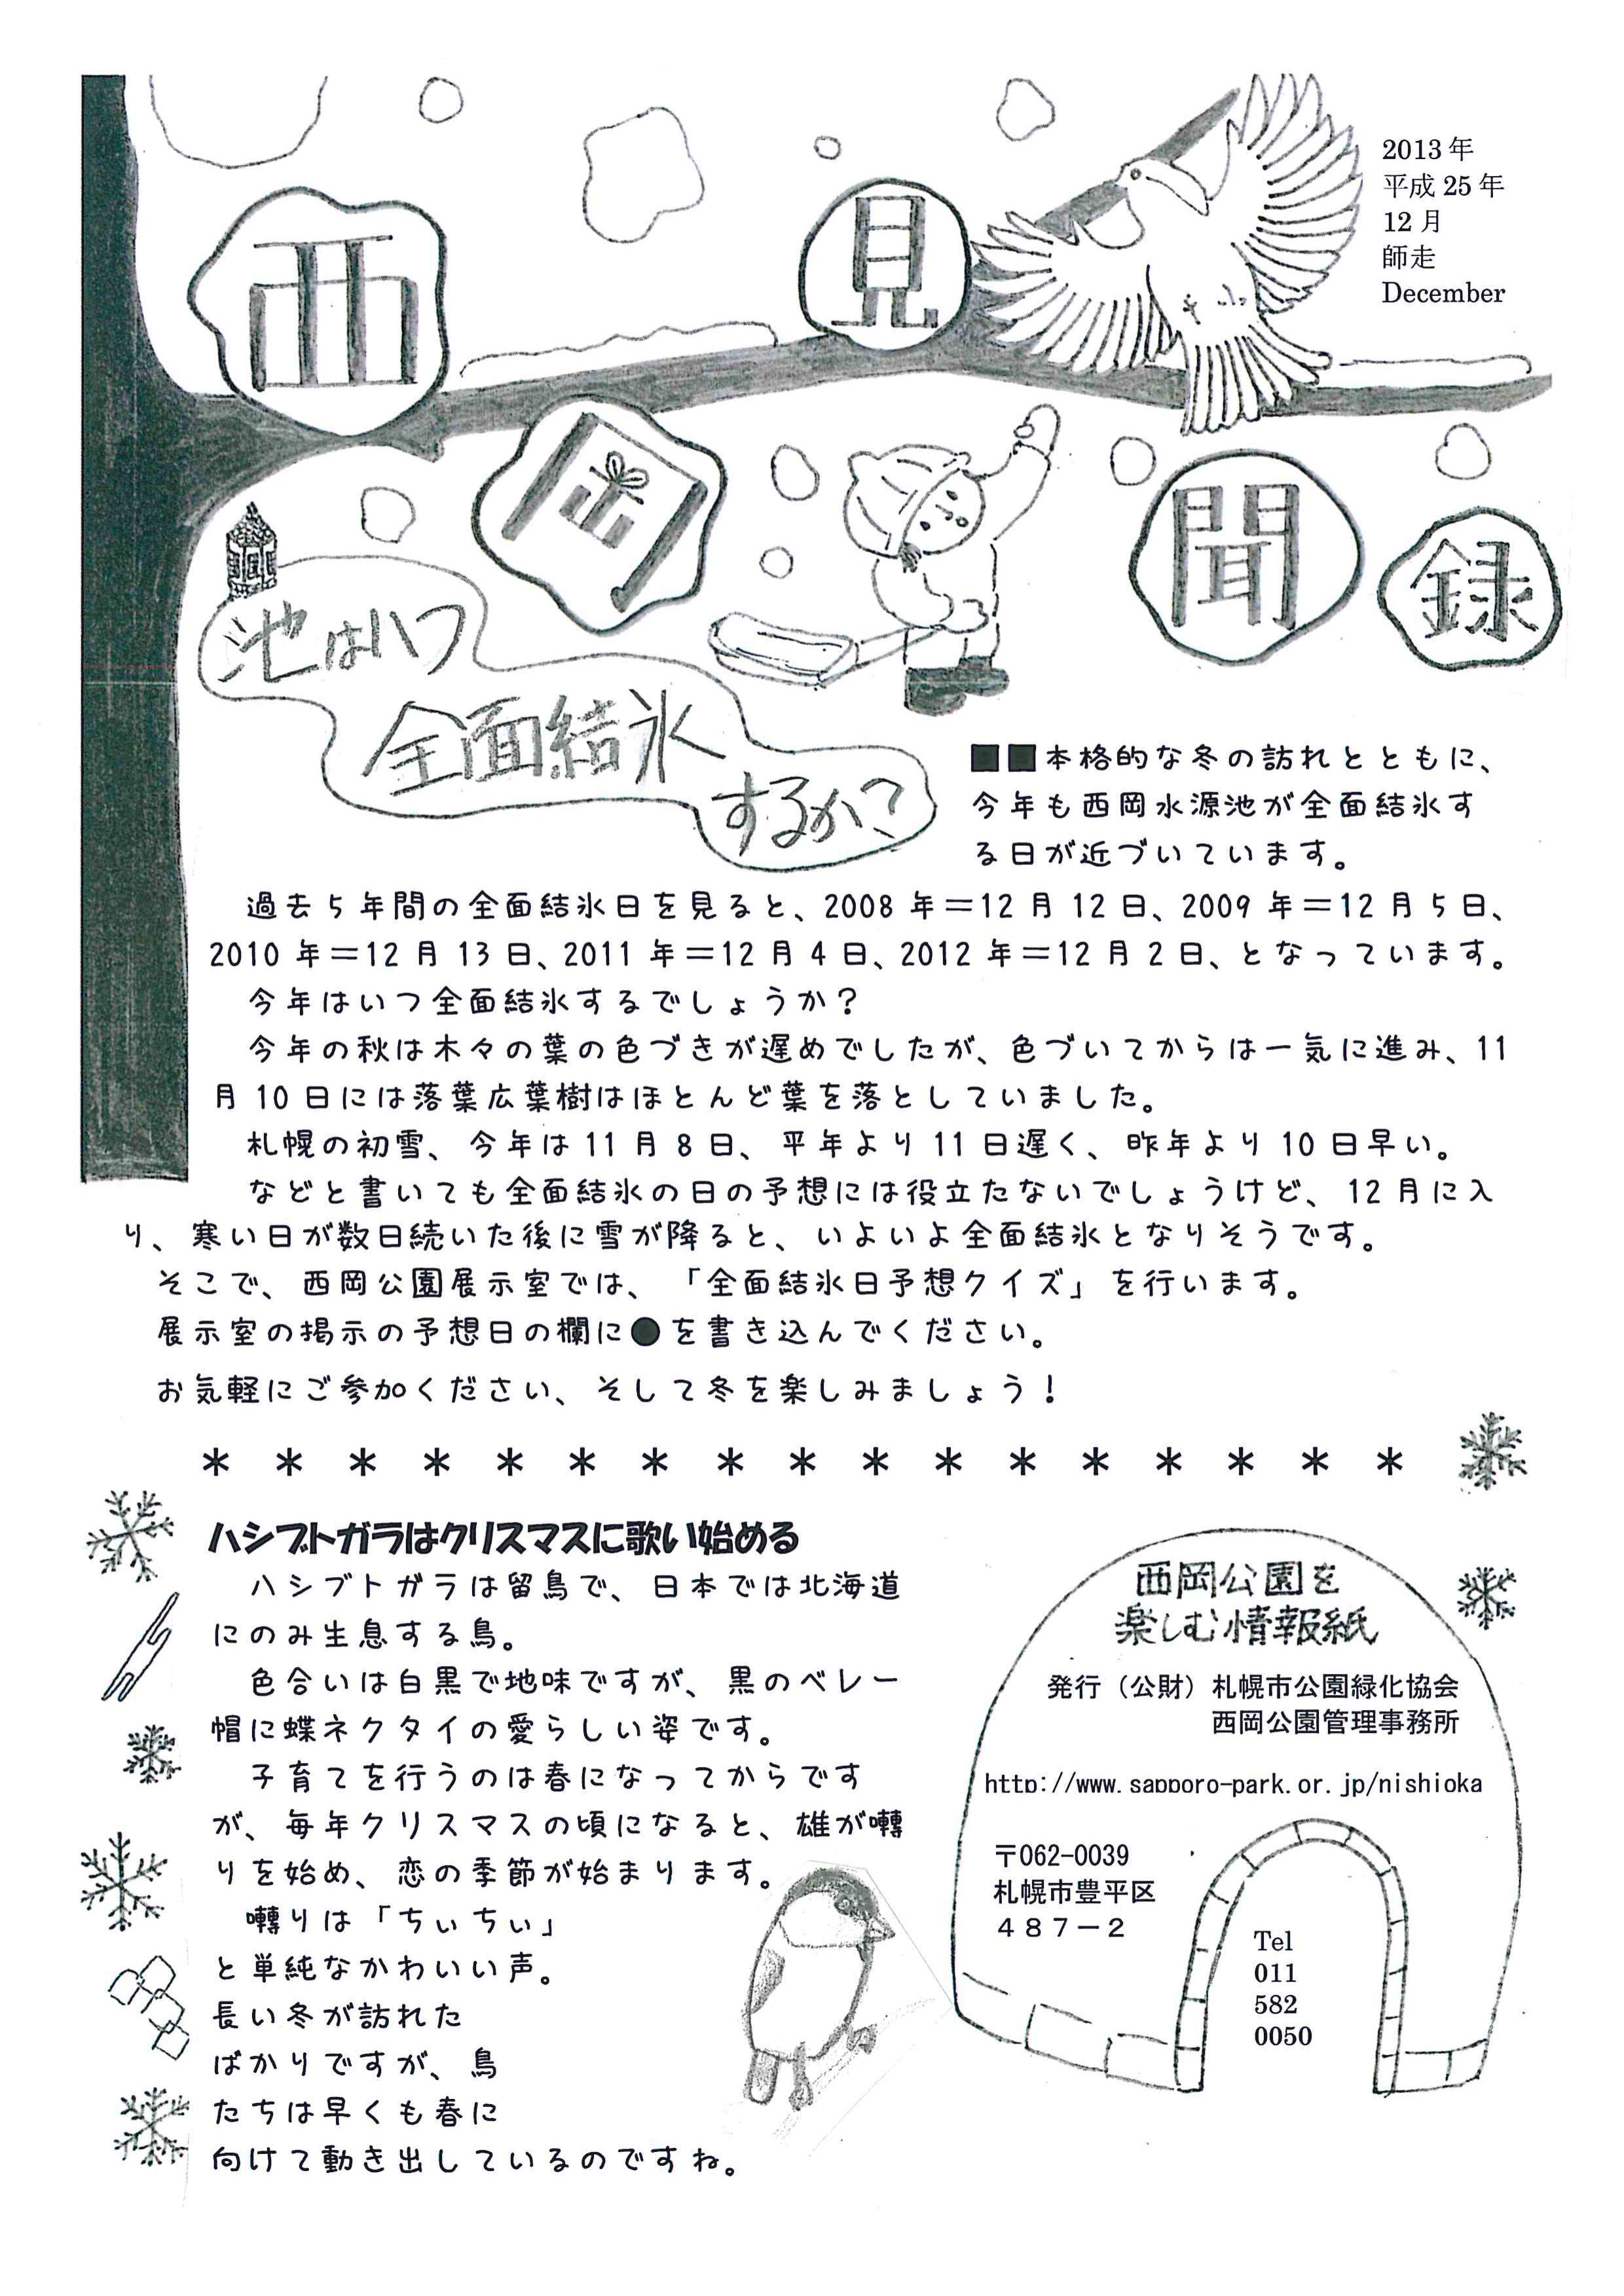 2013年
平成25年
12月
師走
December
西岡見聞録
池はいつ
全面結氷
するか?
■■本格的な冬の訪れとともに、
今年も西岡水源池が全面結氷す
る日が近づいています。
過去5年間の全面結氷日を見ると、2008年＝12月12日、2009年＝12月5日、
2010年＝12月13日、2011年＝12月4日、2012年＝12月2日、となっています。
今年はいつ全面結氷するでしょうか？
今年の秋は木々の葉の色づきが遅めでしたが、色づいてからは一気に進み、11
月10日には落葉広葉樹はほとんど葉を落としていました。
札幌の初雪、今年は11月8日、平年より11日遅く、昨年より10日早い。
などと書いても全面結氷の日の予想には役立たないでしょうけど、12月に入
り、寒い日が数日続いた後に雪が降ると、いよいよ全面結氷となりそうです。
そこで、西岡公園展示室では、「全面結氷日予想クイズ」を行います。
展示室の掲示の予想日の欄に●を書き込んでください。
お気軽にご参加ください、そして冬を楽しみましょう！
＊ ＊ ＊ ＊ ＊ ＊ ＊ ＊ ＊ ＊ ＊ ＊ ＊ ＊ ＊ ＊ ＊
ハシブトガラはクリスマスに歌い始める
ハシブトガラは留鳥で、日本では北海道
にのみ生息する鳥。
色合いは白黒で地味ですが、黒のベレー
帽に蝶ネクタイの愛らしい姿です。
子育てを行うのは春になってからです
が、毎年クリスマスの頃になると、雄が囀
りを始め、恋の季節が始まります。
囀りは「ちぃちぃ」
と単純なかわいい声。
長い冬が訪れた
ばかりですが、鳥
たちは早くも春に
向けて動き出しているのですね。
西岡公園を
楽しむ情報紙
発行（公財）札幌市公園緑化協会
西岡公園管理事務所
http://www.sapporo-park.or.jp/nishioka
〒062-0039
札幌市豊平区
４８７－２
Tel
011
582
0050